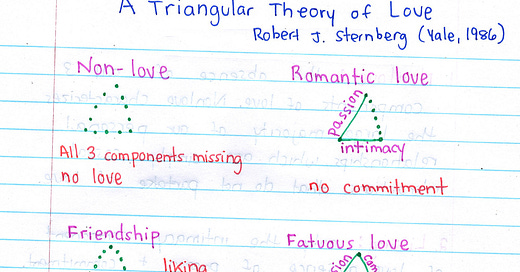 A Triangular Theory of Love
Robert J. Sternberg (Yale, 1986)
Non-love
Romantic love
Passion
intimacy
All 3 components missing
no love
no commitment
Friendship
Fatuous love
liking